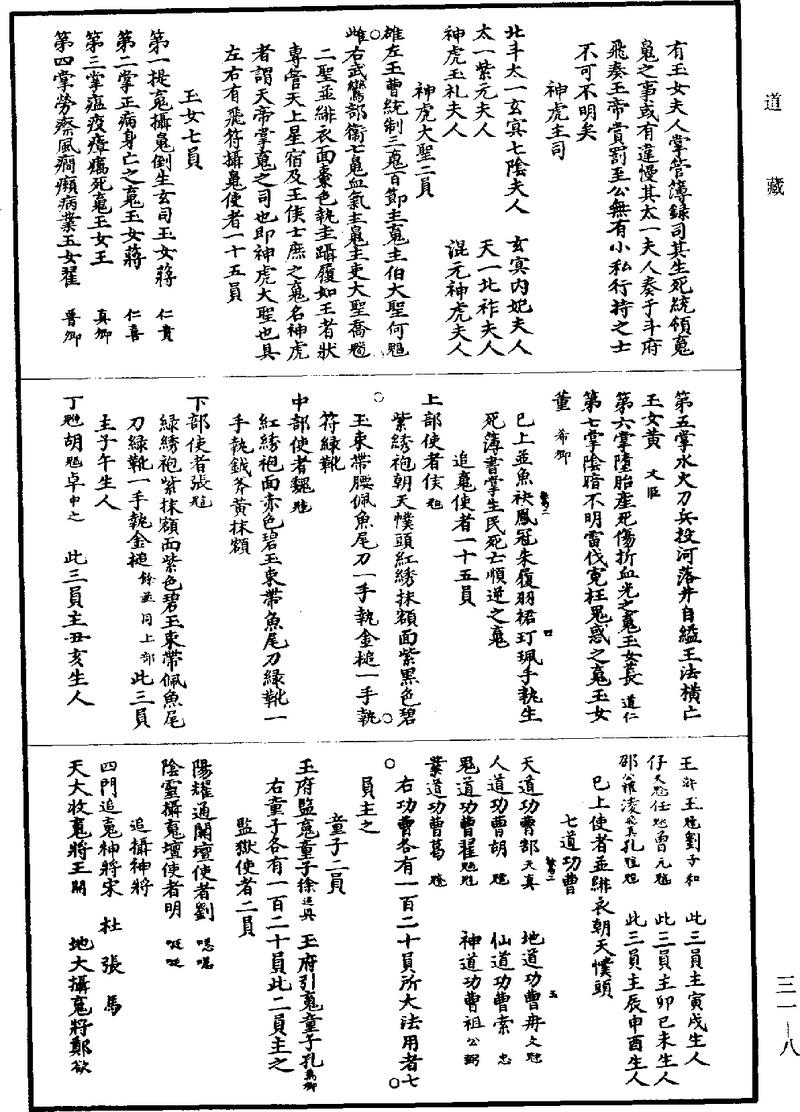 道藏
有玉女夫人掌管簿録司其生死統領䰟
䰟之事或有違慢其太一夫人奏于斗府
飛奏玉帝賞罰至公無有小私行持之士
不可不明矣
神虎主司
北斗太一玄冥七陰夫人 玄冥内妃夫人
太一紫元夫人 天一北祚夫人
神虎玉札夫人 混元神虎夫人
神虎大聖二員
雄左玉曹統制三䰟百節主䰟主伯大聖何
雌右武鸞部衛七䰟血氣主䰟主吏大聖喬
二聖並緋衣面棗色執圭躡履如王者狀
專管天上星宿及王侯士庶之䰟名神虎
者謂天帝掌䰟之司也即神虎大聖也具
左右有飛符攝䰟使者一十五員
玉女七員
第一提䰟攝䰟倒生玄司玉女蔣 仁貴
第二掌正病身亡之䰟玉女蔣 仁喜
第三掌瘟疫瘴癘死䰟玉女王 真卿
第四掌勞瘵風癇癩病業玉女翟 晋卿
第五掌水火刀兵投河落井自縊王法横亡
玉女黄 文臣
第六掌墮胎產死傷折血光之䰟玉女長 道仁
第七掌陰暗不明雷伐寃枉鬼惑之䰟玉女
董 希卿
已上並魚袂鳳冠朱履羽裙玎珮手執生
死薄書掌生民死亡順逆之䰟
追䰟使者一十五員
上部使者侫
紫綉袍朝天幞頭紅綉抹額面紫黑色碧
玉束帶腰佩魚尾刀一手執金槌一手執
符緑靴
中部使者魏
紅綉袍面赤色碧玉束帶魚尾刀緑靴一
手執鉞斧黄抹額
下部使者張
緑綉袍紫抹額面紫色碧玉束帶佩魚尾
刀緑靴一手執金槌餘並同上部此三員
主子午生人
丁 胡 卓中之 此三員主丑亥生人
王 王 劉子和 此三員主寅戌生人
仔 任 曾元 此三員主卯巳未生人
邵 凌 孔 此三員主辰申酉生人
已上使者並緋衣朝天幞頭
七道功曹
天道功曹郜天真 地道功曹毋文
人道功曹胡 仙道功曹索 忠
鬼道功曹翟 神道功曹祖公弼
業道功曹葛
右功曹各有一百二十員所大法用者七
員主之
童子二員
玉府監䰟童子徐 玉府引䰟童子孔
右童子各有一百二十員此二員主之
監獄使者二員
陽耀通關壇使者劉
陰靈攝䰟壇使者明
追攝神將
四門追䰟神將宋 杜 張 馬
天大收䰟將王 開 地大攝䰟將鄭 欲
三一—八